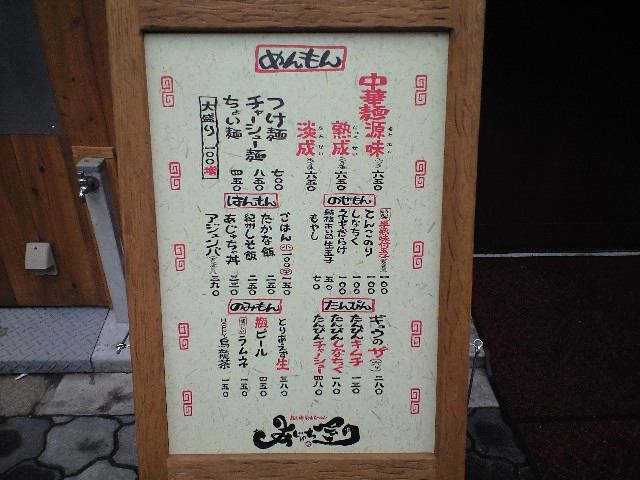 めんもん
中華麺源味 六五〇
熟成 六五〇
淡成 六五〇
つけ麺 七〇〇
チャーシュー麺 八五〇
ちょい麺 四五〇
大盛り 一〇〇増
のせもん
半熟味付玉子 一〇〇
てんこのり 一〇〇
しなちく 一〇〇
うまそだらけ 一〇〇
生玉子 五〇
もやし 七〇
はんもん
ごはん 小一〇〇 中一五〇
たかな飯 二五〇
紀州しそ飯 二五〇
あじゅちっ丼 三三〇
アジュンバ 二九〇
たんぴん
ギョウのザ 二八〇
たんぴんキムチ 一三〇
たんぴんしなちく 一八〇
たんぴんチャーシュー 四八〇
のみもん
とりあえず生 三八〇
瓶ビール 四五〇
ラムネ 一五〇
烏龍茶 一五〇